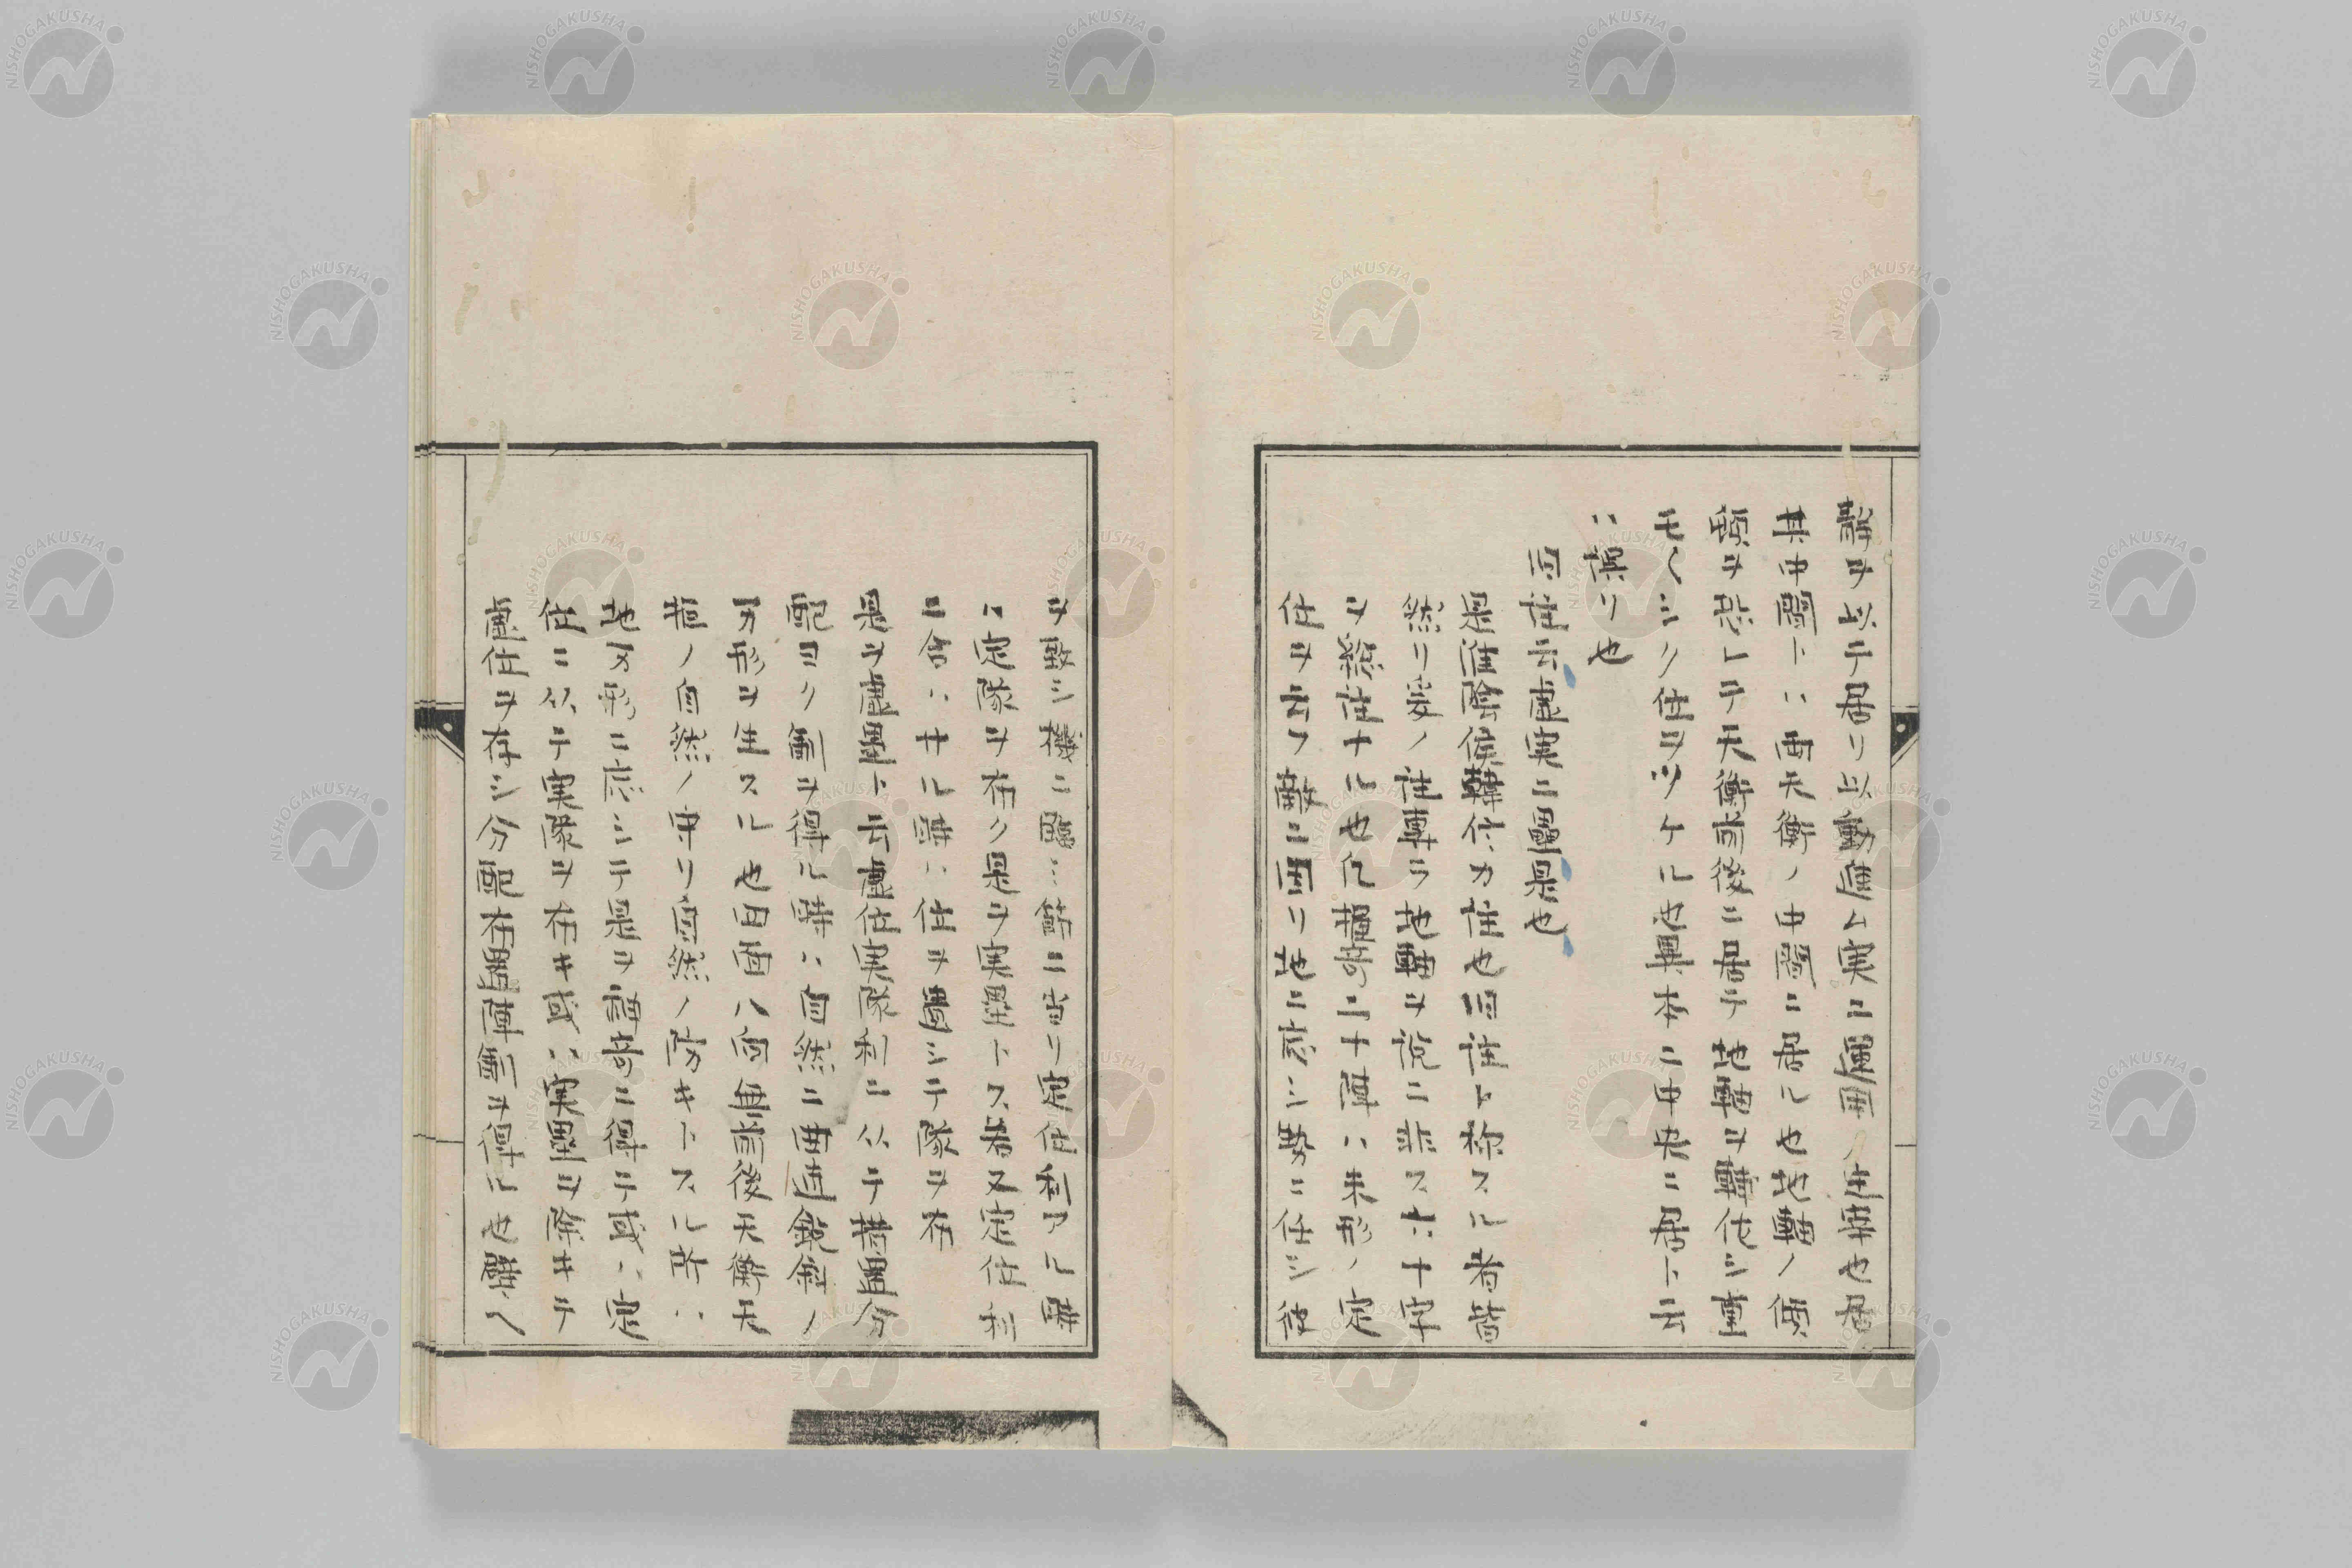 靜ヲ以テ居リ以動進ム実ニ運用ノ生華也居
其中間トハ両天衡ノ中間ニ居ル也地軸ノ使
領ヲ忘レテ天衡前後ニ居テ地軸ヲ轉化シ重
モヘシク住ヲツケル也異本ニ中央ニ居ト云
ハ誤リ也
回注云虚実ニ壘是也
是進陰使轉化ノ注也旧注ト称スル者皆
然リ爰ノ注専ラ地軸ヲ説ニ非ス六十字
ヲ総注ナル也凡握奇二十陣ハ未形ノ定
住ヲ去フ敵ニ因リ地ニ應シ勢ニ任シ彼
ヲ取シ機ニ臨ミ節ニ省リ定住利アル時
ハ定隊ヲ布ク是ヲ実壘トス若又定住利
ニ合ハサル時ハ住ヲ置シテ隊ヲ布
是ヲ虚壘ト云虚住実隊利ニ从テ携盟分
配ヨク衝ヲ得ル時ハ自然ニ曲直鋭斜ノ
方形ヲ生スル也旧面八向無前後天衡天
極ノ自然ノ守リ自然ノ防キトスル所ハ
地方形ニ應シテ是ヲ請奇ニ得テ或ハ定
住ニ从テ実隊ヲ布キ或ハ実壘ヲ除キテ
虚住ヲ存シ分配布置陣衝ヲ得ル也時ヘ
NISHOGAKUSHA